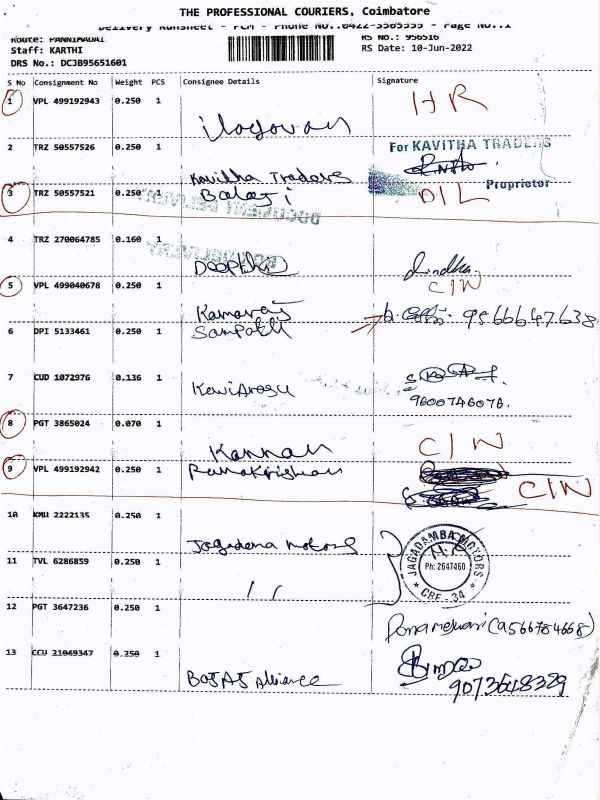 THE PROFESSIONAL COURIERS, Coimbatore
Delivery Runsheet - PCM - Phone No.:0422-3505555 - Page No.:1
Route: PANNIMADAI
RS No.: 956516
Staff: KARTHI
RS Date: 10-Jun-2022
DRS No.: DCJB95651601
S No Consignment No Weight PCS Consignee Details Signature
1 VPL 499192943 0.250 1 HR
ilagovan
2 TRZ 50557526 0.250 1 For KAVITHA TRADERS
Kavitha Traders Proprietor
3 TRZ 50557521 0.250 1 Balaji D/L
DOCUMENT DELIVERY
4 TRZ 270064785 0.160 1
Deepthi
5 VPL 499040678 0.250 1 C/N
Kamaraj 9566647638
6 DPI 5133461 0.250 1 Sampath
7 CUD 1072976 0.136 1 Kaviarasu
9600746076.
8 PGT 3865024 0.070 1
Kannan C/N
9 VPL 499192942 0.250 1 Ramakrishnan C/N
10 KMU 2222135 0.250 1
Jagadema motors
11 TVL 6286859 0.250 1 JAGADAMBA MOTORS
Ph: 2647460
CBE - 34
12 PGT 3647236 0.250 1
(9566784668)
13 CCU 21049347 0.250 1
BaJAJ Alliance 9073648329